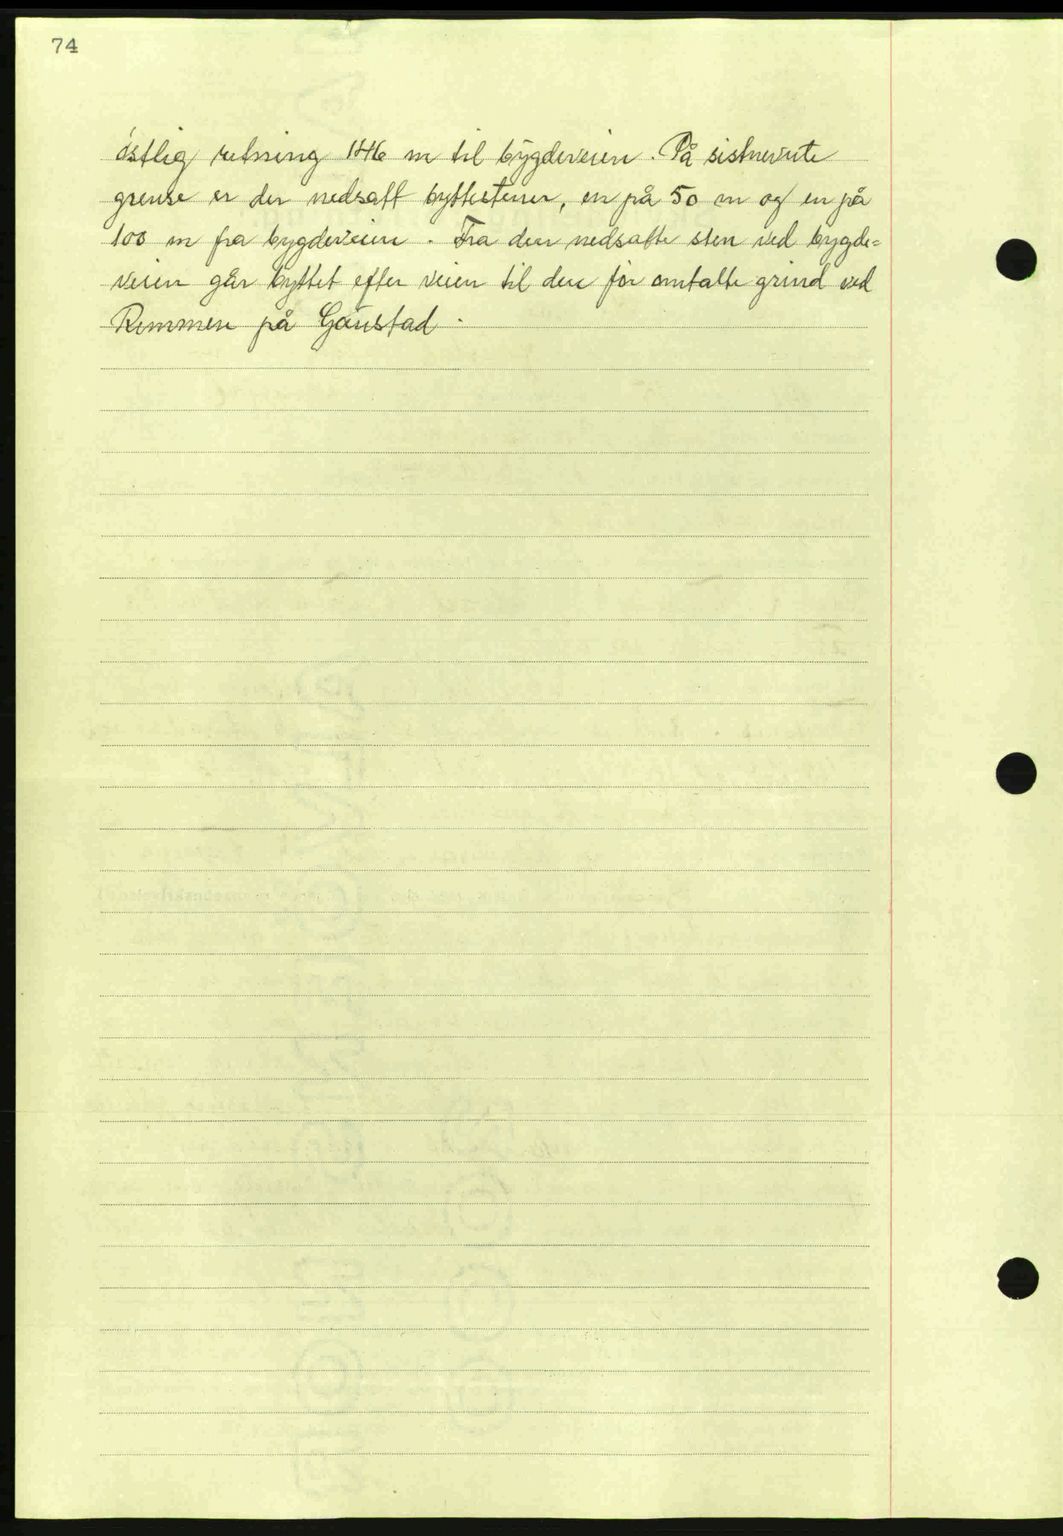 74
östlig retning 146 m til bygdeveien. På sistnevnte
grense er der nedsatt byttestener, en på 50 m og en på
100 m fra bygdeveien. Fra den nedsatte sten ved bygde=
veien går byttet efter veien til den för omtalte grind ved
Remmen på Gaustad.